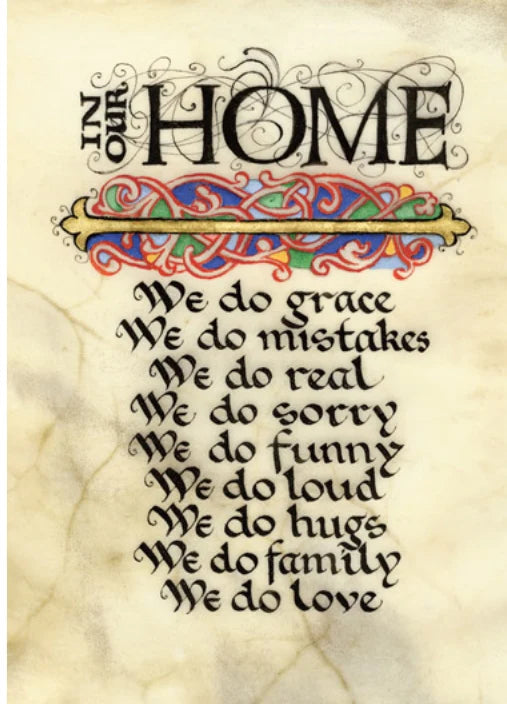 IN OUR HOME
We do grace
We do mistakes
We do real
We do sorry
We do funny
We do loud
We do hugs
We do family
We do love